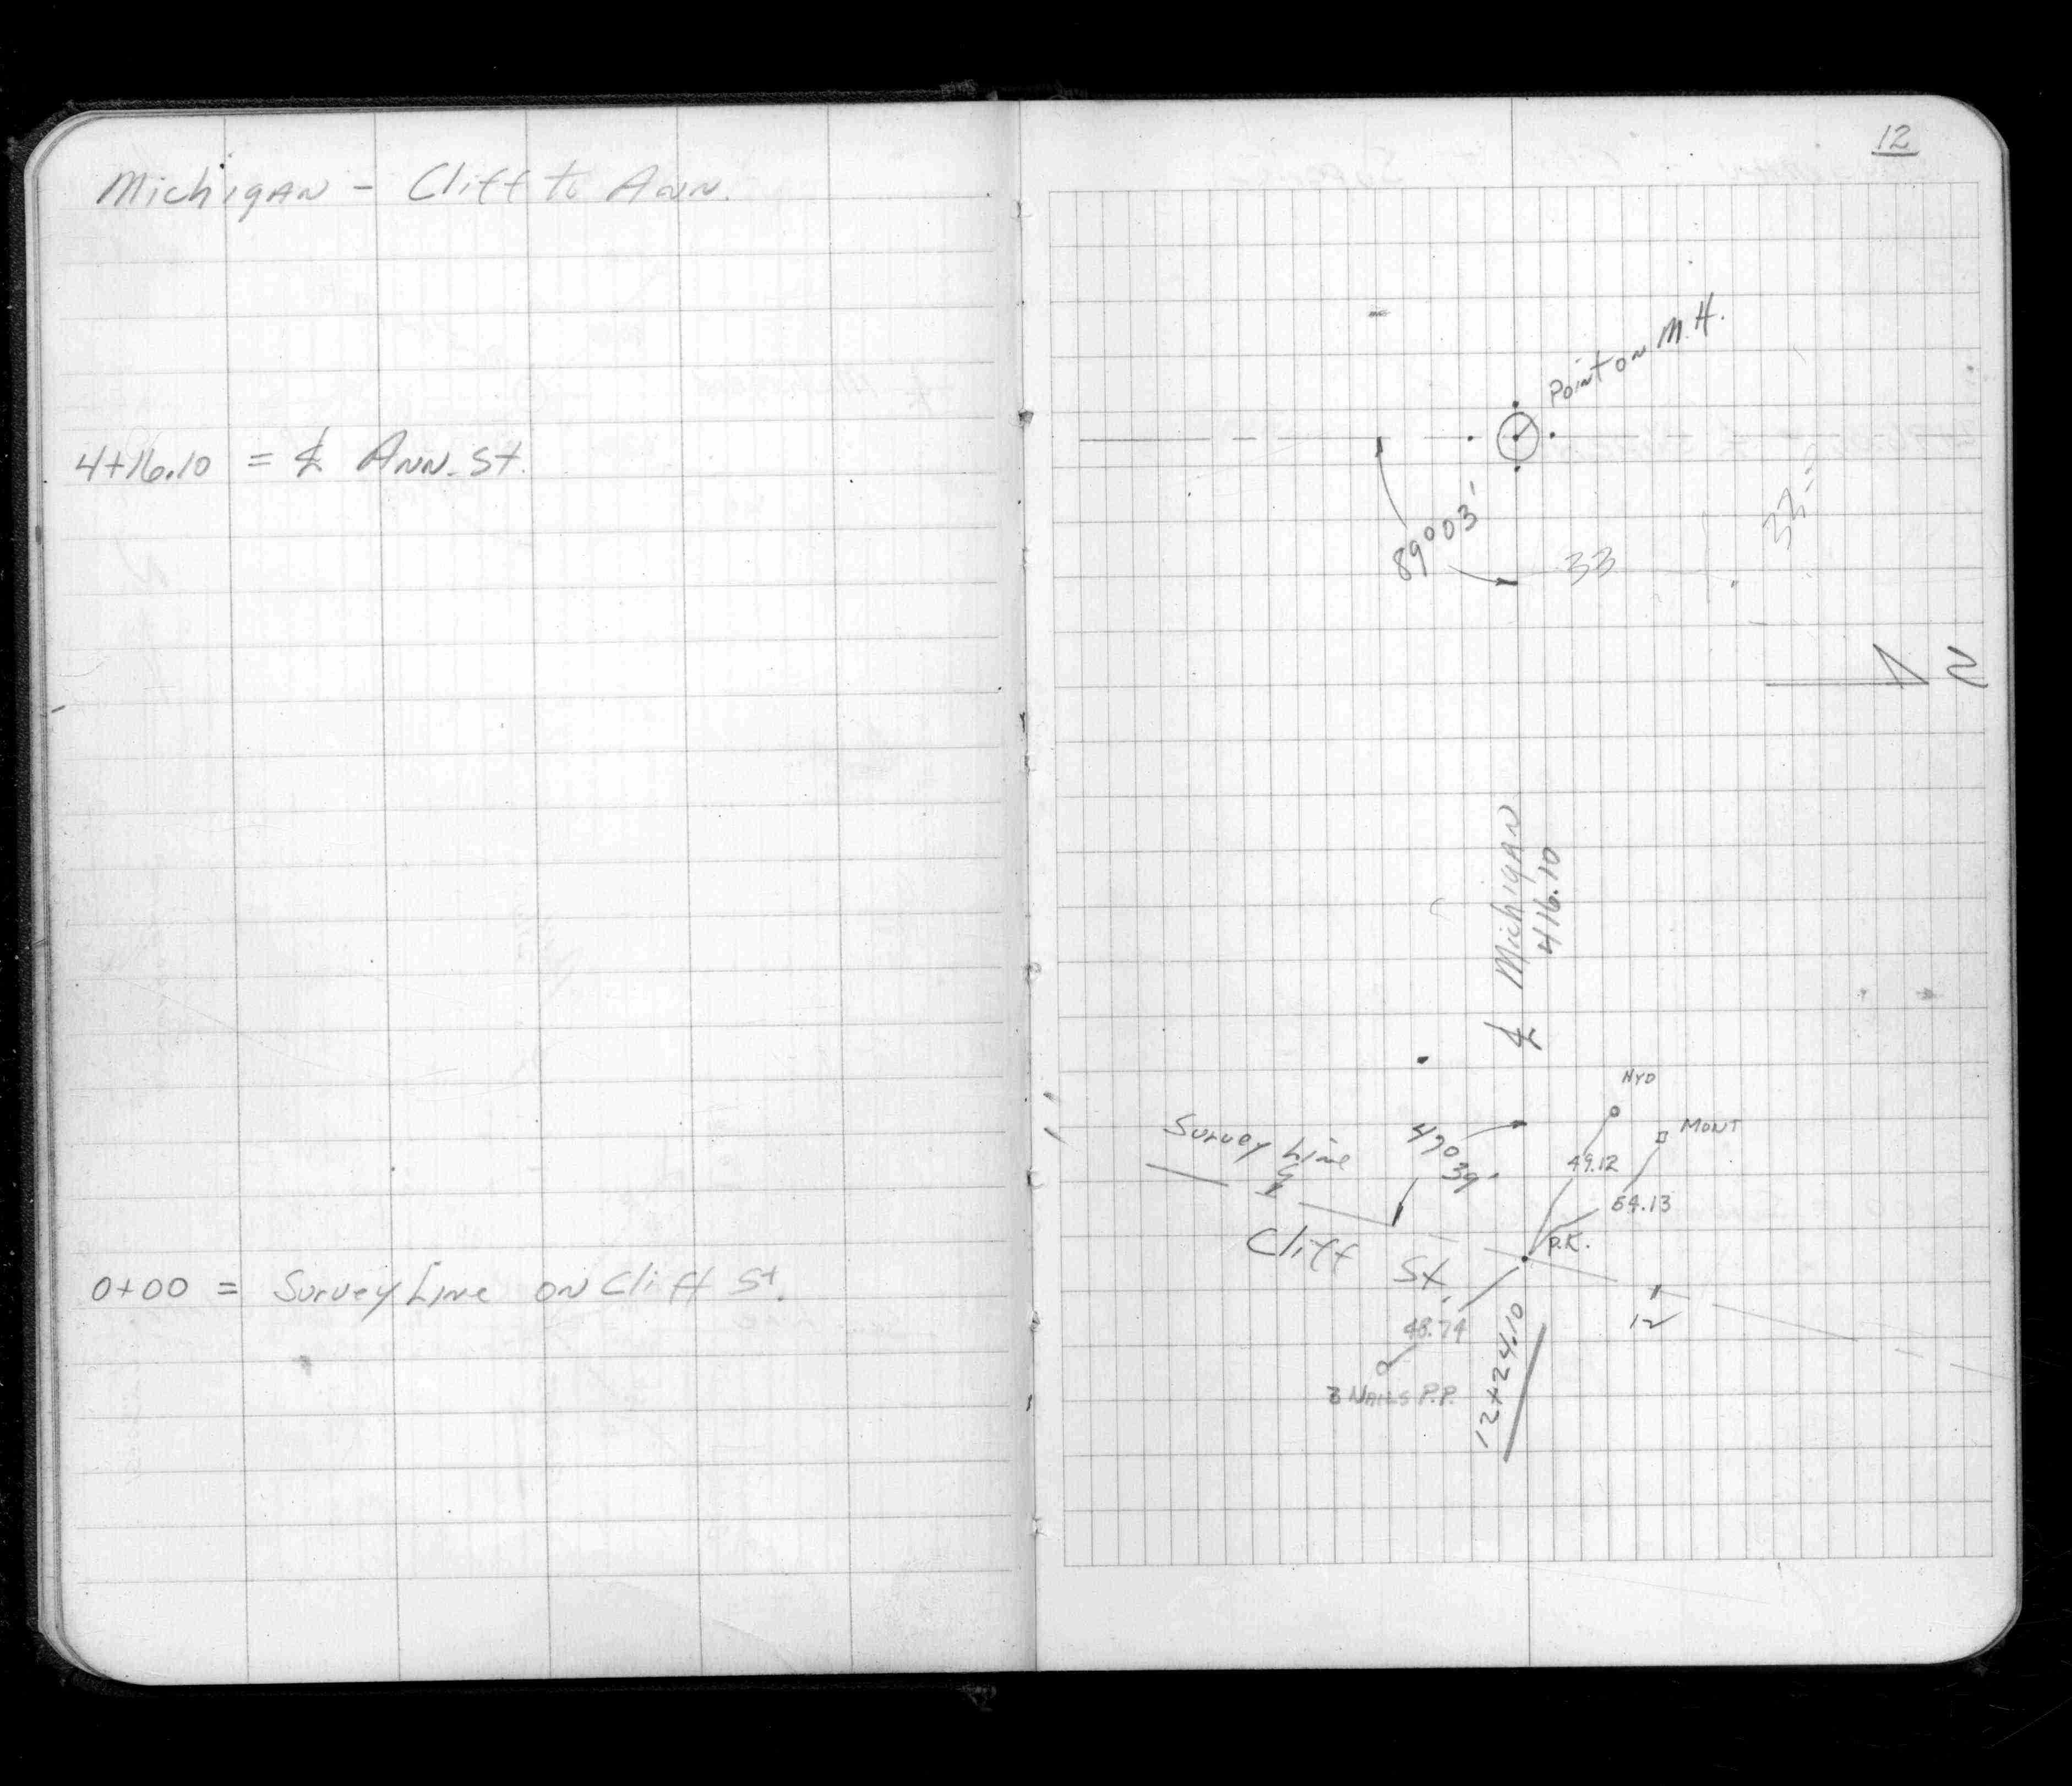 Michigan - Cliff to Ann.
4+16.10 = ℄ Ann. St.
0+00 = Survey Line on Cliff St.
12
Point on M.H.
89°03'
33
33
N
℄ Michigan
416.10
HYD
MONT
Survey Line
47°
39'
49.12
54.13
Cliff St.
P.K.
12
48.74
3 NAILS P.P.
12+24.10